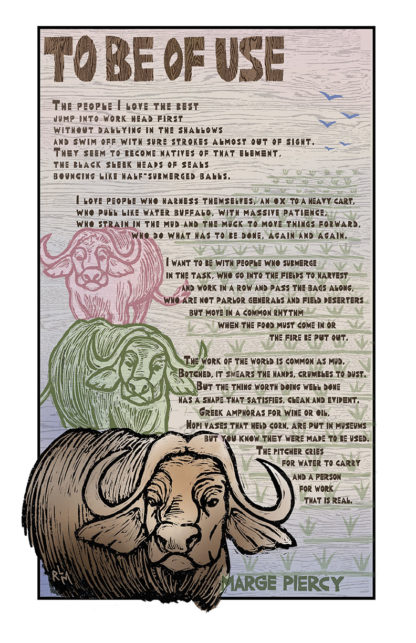 TO BE OF USE
THE PEOPLE I LOVE THE BEST
JUMP INTO WORK HEAD FIRST
WITHOUT DALLYING IN THE SHALLOWS
AND SWIM OFF WITH SURE STROKES ALMOST OUT OF SIGHT.
THEY SEEM TO BECOME NATIVES OF THAT ELEMENT,
THE BLACK SLEEK HEADS OF SEALS
BOUNCING LIKE HALF-SUBMERGED BALLS.
I LOVE PEOPLE WHO HARNESS THEMSELVES, AN OX TO A HEAVY CART,
WHO PULL LIKE WATER BUFFALO, WITH MASSIVE PATIENCE,
WHO STRAIN IN THE MUD AND THE MUCK TO MOVE THINGS FORWARD,
WHO DO WHAT HAS TO BE DONE, AGAIN AND AGAIN.
I WANT TO BE WITH PEOPLE WHO SUBMERGE
IN THE TASK, WHO GO INTO THE FIELDS TO HARVEST
AND WORK IN A ROW AND PASS THE BAGS ALONG,
WHO ARE NOT PARLOR GENERALS AND FIELD DESERTERS
BUT MOVE IN A COMMON RHYTHM
WHEN THE FOOD MUST COME IN OR
THE FIRE BE PUT OUT.
THE WORK OF THE WORLD IS COMMON AS MUD.
BOTCHED, IT SMEARS THE HANDS, CRUMBLES TO DUST.
BUT THE THING WORTH DOING WELL DONE
HAS A SHAPE THAT SATISFIES, CLEAN AND EVIDENT.
GREEK AMPHORAS FOR WINE OR OIL,
HOPI VASES THAT HELD CORN, ARE PUT IN MUSEUMS
BUT YOU KNOW THEY WERE MADE TO BE USED.
THE PITCHER CRIES
FOR WATER TO CARRY
AND A PERSON
FOR WORK
THAT IS REAL.
MARGE PIERCY
RLM